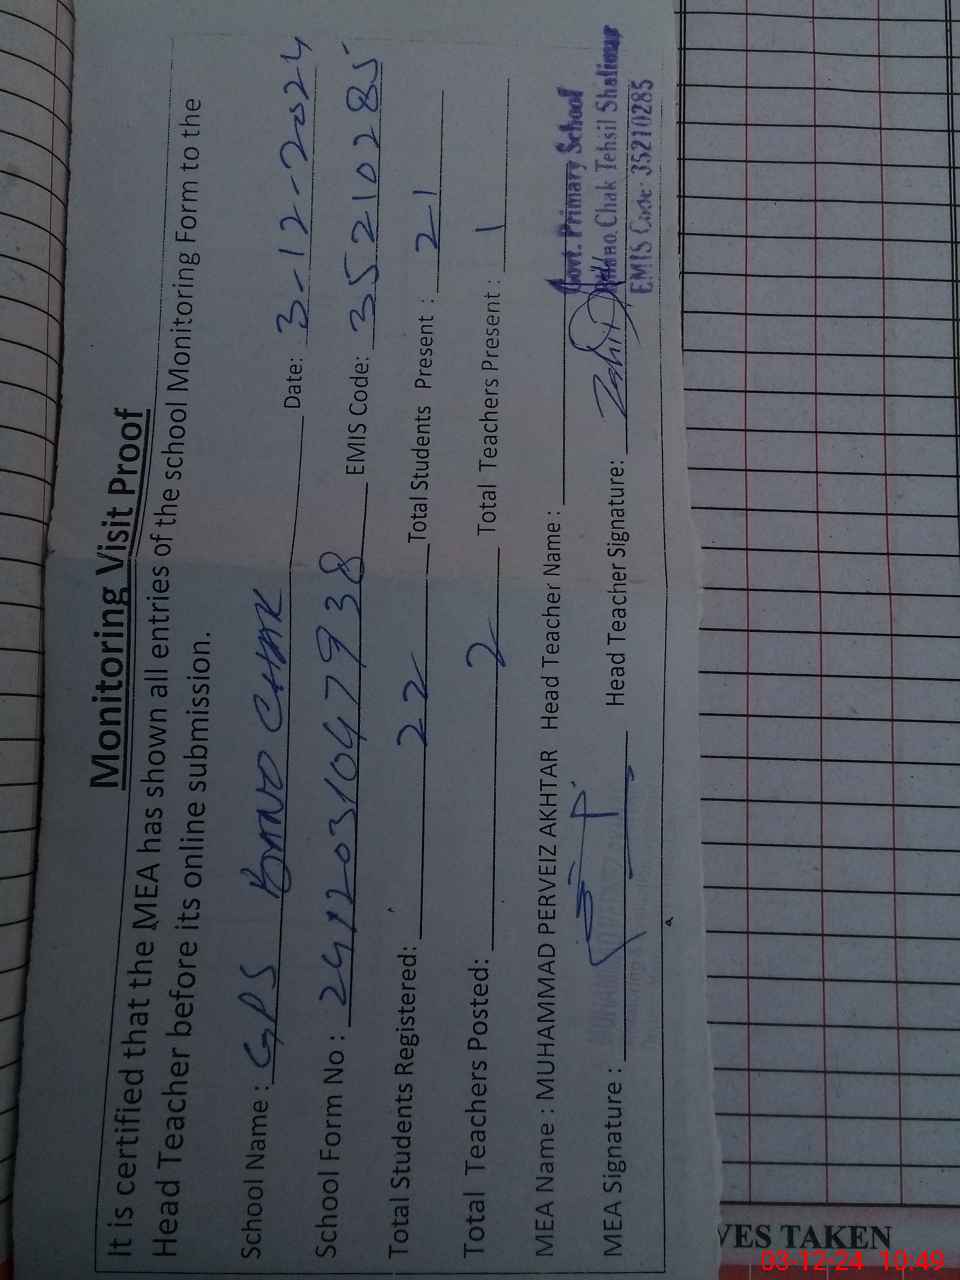 Monitoring Visit Proof
It is certified that the MEA has shown all entries of the school Monitoring Form to the
Head Teacher before its online submission.
School Name : GPS BANO CHAK Date: 3-12-2024
School Form No : 24120310479 38 EMIS Code: 35210285
Total Students Registered: 22 Total Students Present : 21
Total Teachers Posted: 2 Total Teachers Present : 1
MEA Name : MUHAMMAD PERVEIZ AKHTAR Head Teacher Name :
Govt. Primary School
Chak Tehsil Shalimar
EMIS Code: 35210285
MEA Signature : Head Teacher Signature: Zahid
VES TAKEN
03-12-24 10:49